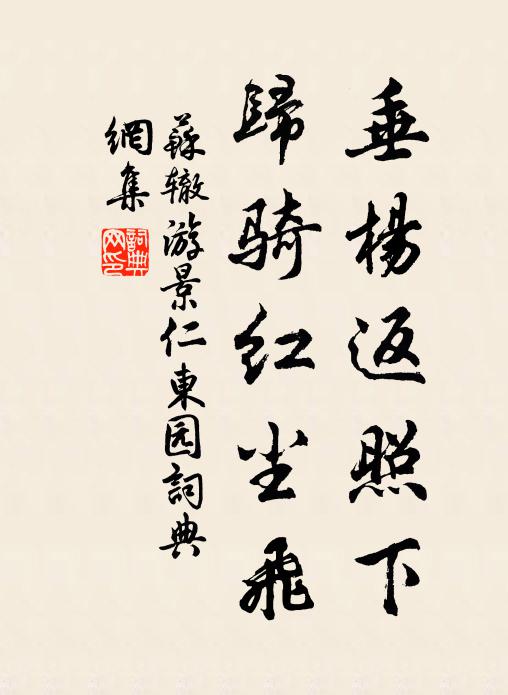 垂楊返照下
歸騎紅尘飛
蘇辙游景仁東园詞典
網集
詞典网印